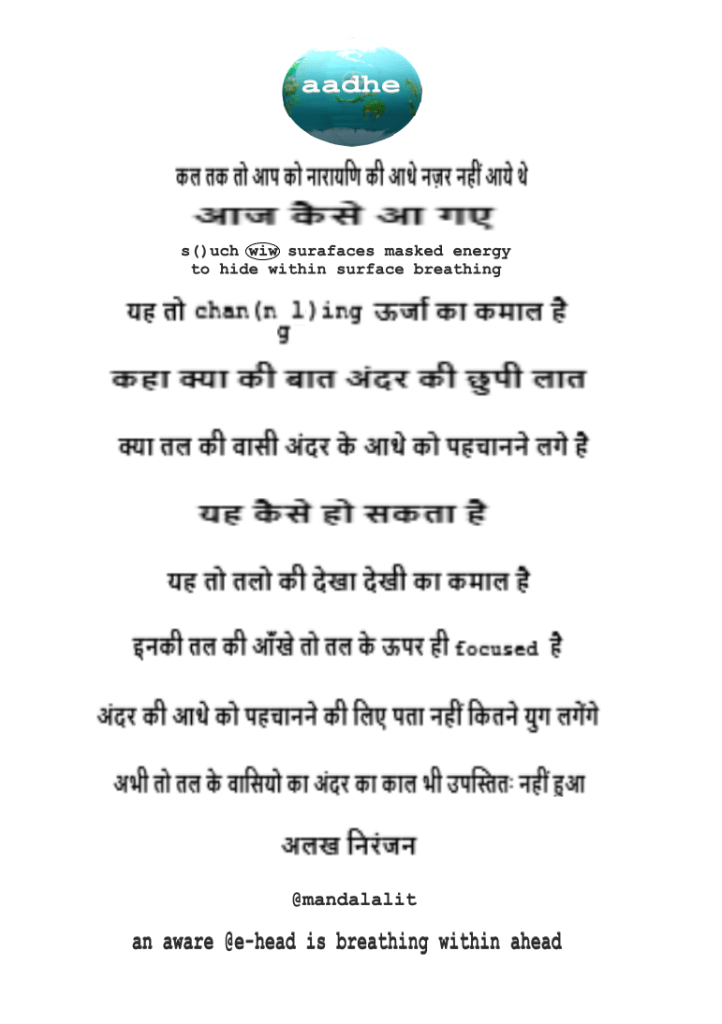 aadhe
कल तक तो आप को नारायणि की आधे नज़र नहीं आये थे
आज कैसे आ गए
s()uch wiw surafaces masked energy
to hide within surface breathing
यह तो chan(n l)ing ऊर्जा का कमाल है
g
कहा क्या की बात अंदर की छुपी लात
क्या तल की वासी अंदर के आधे को पहचानने लगे है
यह कैसे हो सकता है
यह तो तलो की देखा देखी का कमाल है
इनकी तल की आँखे तो तल के ऊपर ही focused है
अंदर की आधे को पहचानने की लिए पता नहीं कितने युग लगेंगे
अभी तो तल के वासियो का अंदर का काल भी उपस्तितः नहीं हुआ
अलख निरंजन
@mandalalit
an aware @e-head is breathing within ahead